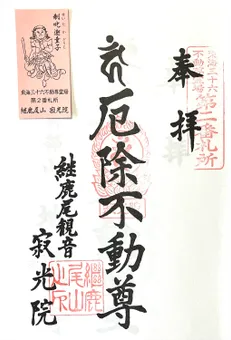 奉拝
東海三十六
不動尊霊場
第二番札所
厄除不動尊
継鹿尾観音
寂光院
繼鹿
尾山
之印
制吒迦童子
東海三十六不動尊霊場
第2番札所
継鹿尾山 寂光院